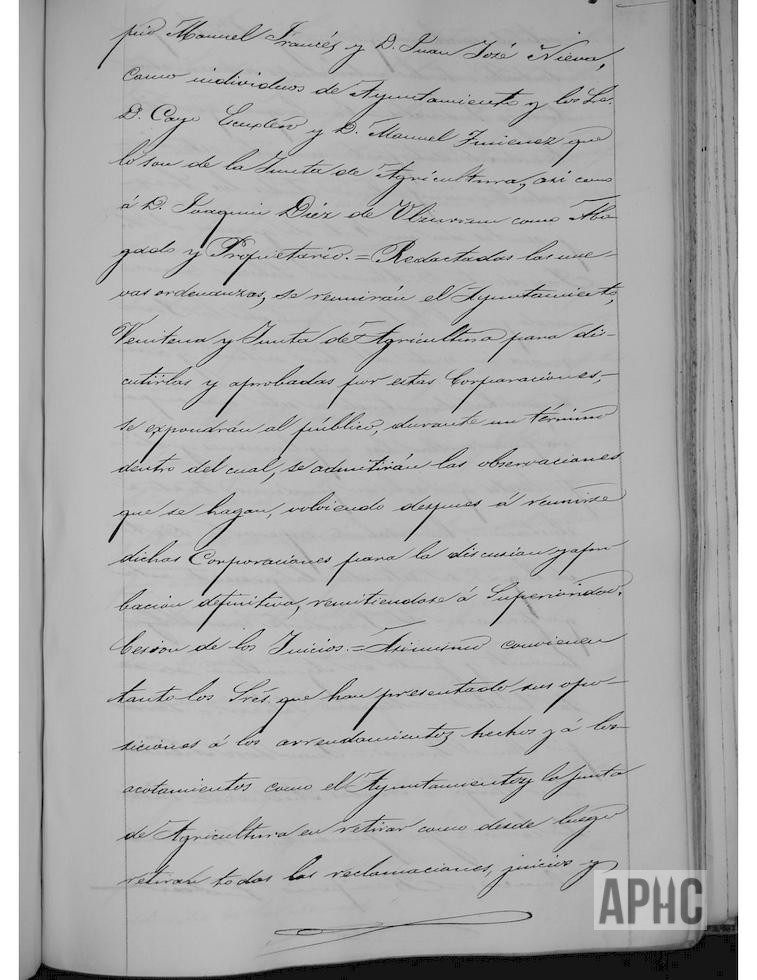 pio Manuel Francés y D. Juan José Nieva,
como individuos de Ayuntamiento y los Sres.
D. Cayo Escudero y D. Manuel Jimenez que
lo son de la Junta de Agricultura, asi como
á D. Joaquin Diez de Ulzurrun como Abo-
gado y Propietario. = Redactadas las nue-
vas ordenanzas, se reunirán el Ayuntamiento,
Veintena y Junta de Agricultura para dis-
cutirlas y aprobadas por estas Corporaciones,
se expondrán al público, durante un término
dentro del cual, se admitirán las observaciones
que se hagan, volviendo despues á reunirse
dichas Corporaciones para la discusion y apro-
bacion definitiva, remitiendose á Superioridad.
Cesion de los Juicios. = Asimismo convienen
tanto los Sres. que han presentado sus opo-
siciones á los arrendamientos hechos y á los
acotamientos como el Ayuntamiento y la Junta
de Agricultura en retirar como desde luego
retiran todas las reclamaciones, juicios y
APHC